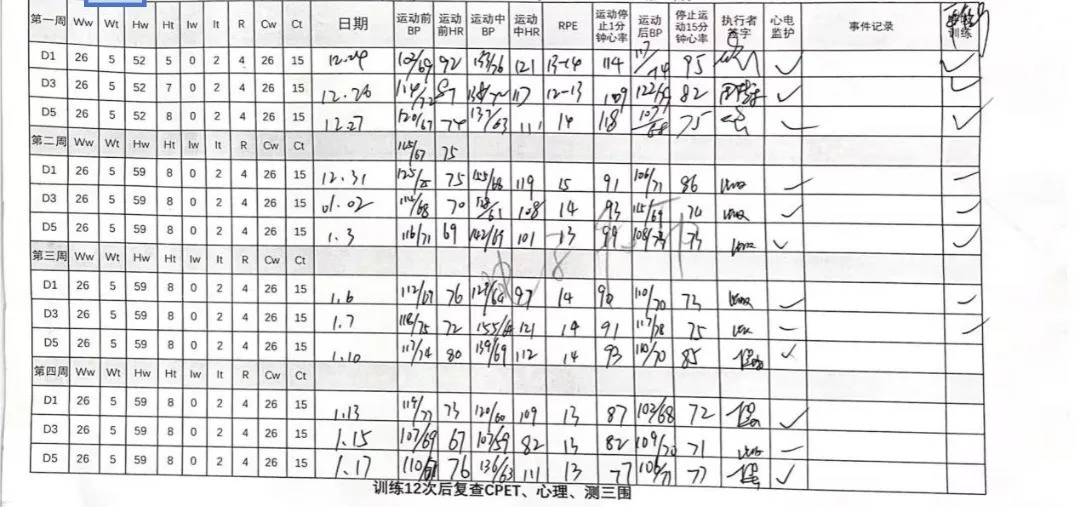 第一周 Ww Wt Hw Ht Iw It R Cw Ct 日期 运动前BP 运动前HR 运动中BP 运动中HR RPE 运动停止1分钟心率 运动后BP 停止运动15分钟心率 执行者签字 心电监护 事件记录 训练
D1 26 5 52 5 0 2 4 26 15 12.24 102/69 92 121 13-14 114 95 ✓ ✓
D3 26 5 52 7 0 2 4 26 15 12.26 117 12-13 109 82 ✓ ✓
D5 26 5 52 8 0 2 4 26 15 12.27 120/67 74 137/63 111 14 118 107/68 75 ✓ ✓
第二周 Ww Wt Hw Ht Iw It R Cw Ct 115/67 75
D1 26 5 59 8 0 2 4 26 15 12.31 125/75 75 155/68 119 15 91 106/71 86 ✓ ✓
D3 26 5 59 8 0 2 4 26 15 01.02 112/68 70 108 14 93 115/69 ✓ ✓
D5 26 5 59 8 0 2 4 26 15 1.3 116/71 69 142/69 101 13 99 73 ✓ ✓
第三周 Ww Wt Hw Ht Iw It R Cw Ct
D1 26 5 59 8 0 2 4 26 15 1.6 112/67 76 97 14 90 110/70 73 ✓ ✓
D3 26 5 59 8 0 2 4 26 15 1.7 118/75 72 121 14 91 117/78 75 ✓ ✓
D5 26 5 59 8 0 2 4 26 15 1.10 117/74 80 139/69 112 14 93 110/70 85 ✓
第四周 Ww Wt Hw Ht Iw It R Cw Ct
D1 26 5 59 8 0 2 4 26 15 1.13 119/77 73 120/60 109 13 87 102/68 72 ✓
D3 26 5 59 8 0 2 4 26 15 1.15 107/69 67 107/59 82 13 82 109/70 71 ✓
D5 26 5 59 8 0 2 4 26 15 1.17 76 136/63 111 13 77 106/71 77 ✓
训练12次后复查CPET、心理、测三围